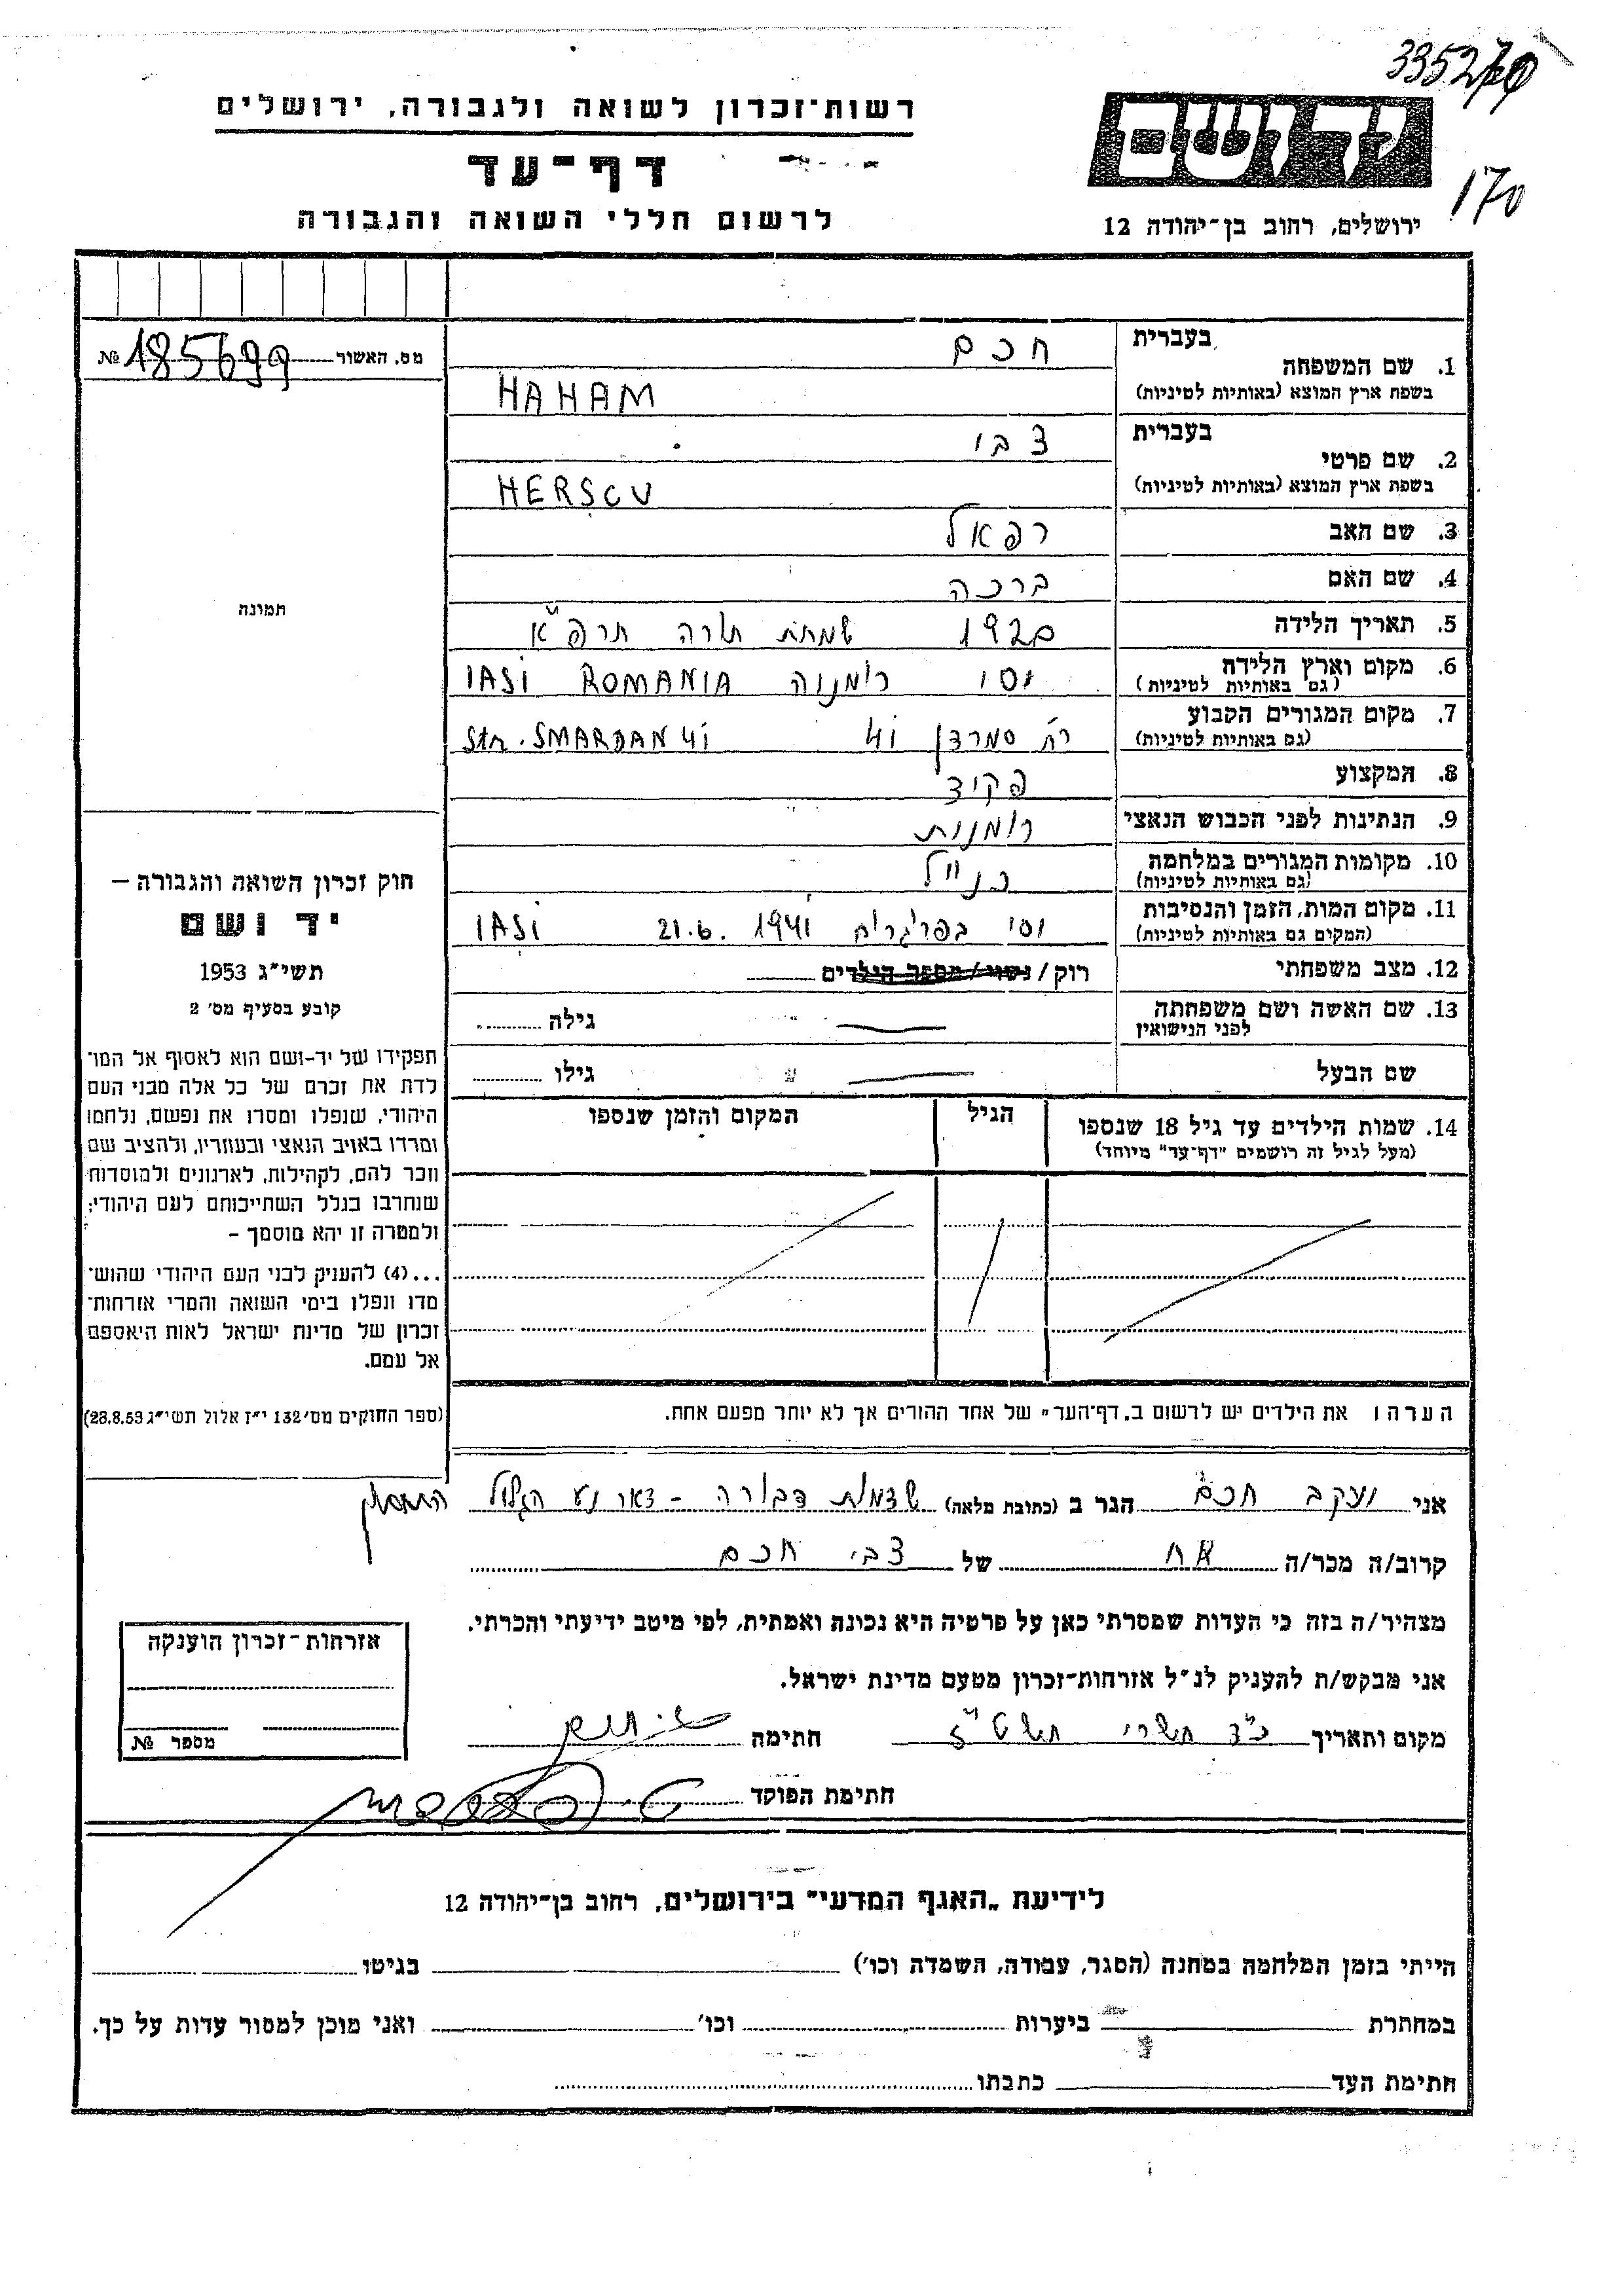 335276
170
רשות־זכרון לשואה ולגבורה, ירושלים
דף־עד
לרשום חללי השואה והגבורה
ידושם
ירושלים, רחוב בן־יהודה 12
מס. האשור 185699 №
תמונה
1. שם המשפחה בעברית חכם
בשפת ארץ המוצא (באותיות לטיניות) HAHAM
2. שם פרטי בעברית צבי
בשפת ארץ המוצא (באותיות לטיניות) HERSCU
3. שם האב רפאל
4. שם האם ברכה
5. תאריך הלידה 1920 שמחת תורה תרפ"א
6. מקום וארץ הלידה (גם באותיות לטיניות) יסי רומניה IASI ROMANIA
7. מקום המגורים הקבוע (גם באותיות לטיניות) רח' סמרדן 41 Str. SMARDAN 41
8. המקצוע פקיד
9. הנתינות לפני הכבוש הנאצי רומנית
10. מקומות המגורים במלחמה (גם באותיות לטיניות) כנ"ל
11. מקום המות, הזמן והנסיבות (המקום גם באותיות לטיניות) יסי 21.6.1941 IASI
12. מצב משפחתי רוק / נשוי / מספר הילדים
13. שם האשה ושם משפחתה לפני הנישואין גילה
שם הבעל גילו
14. שמות הילדים עד גיל 18 שנספו הגיל המקום והזמן שנספו
(מעל לגיל זה רושמים "דף־עד" מיוחד)
חוק זכרון השואה והגבורה –
יד ושם
תשי"ג 1953
קובע בסעיף מס' 2
תפקידו של יד-ושם הוא לאסוף אל המו־
לדת את זכרם של כל אלה מבני העם
היהודי, שנפלו ומסרו את נפשם, נלחמו
ומרדו באויב הנאצי ובעוזריו, ולהציב שם
וזכר להם, לקהילות, לארגונים ולמוסדות
שנחרבו בגלל השתייכותם לעם היהודי;
ולמטרה זו יהא מוסמך –
...(4) להעניק לבני העם היהודי שהוש־
מדו ונפלו בימי השואה והמרי אזרחות־
זכרון של מדינת ישראל לאות היאספם
אל עמם.
(ספר החוקים מס' 132 י"ז אלול תשי"ג 28.8.53)
הערה ו את הילדים יש לרשום ב„דף־העד" של אחד ההורים אך לא יותר מפעם אחת.
אני יעקב חכם הגר ב (כתובת מלאה) שדמות דבורה - דאר נע הגליל התחתון
קרוב/ה מכר/ה אח של צבי חכם
מצהיר/ה בזה כי העדות שמסרתי כאן על פרטיה היא נכונה ואמתית, לפי מיטב ידיעתי והכרתי.
אני מבקש/ת להעניק לנ"ל אזרחות־זכרון מטעם מדינת ישראל.
מקום ותאריך כ"ד תשרי תשט"ז חתימה
חתימת הפוקד
אזרחות־זכרון הוענקה
מספר №
לידיעת „האגף המדעי" בירושלים, רחוב בן־יהודה 12
הייתי בזמן המלחמה במחנה (הסגר, עבודה, השמדה וכו') בגיטו
במחתרת ביערות וכו' ואני מוכן למסור עדות על כך.
חתימת העד כתבתו